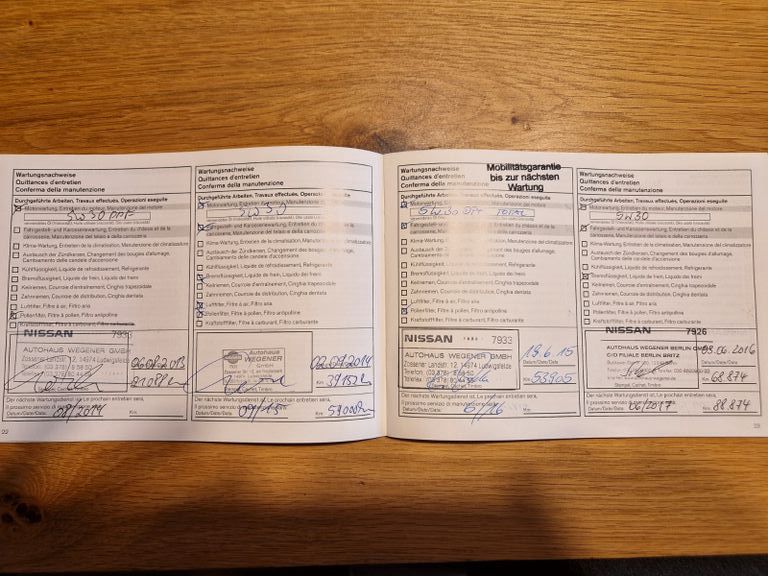 Wartungsnachweise
Quittances d'entretien
Conferma della manutenzione
Durchgeführte Arbeiten, Travaux effectués, Operazioni eseguite
Motorwartung, Entretien du moteur, Manutenzione del motore
5W30 DPF
Fahrgestell- und Karosseriewartung, Entretien du châssis et de la
carrosserie, Manutenzione del telaio e della carrozzeria
Klima-Wartung, Entretien de la climatisation, Manutenzione del climatizzatore
Austausch der Zündkerzen, Changement des bougies d'allumage,
Cambiamento delle candele d'accensione
Kühlflüssigkeit, Liquide de refroidissement, Refrigerante
Bremsflüssigkeit, Liquide de frein, Liquido dei freni
Keilriemen, Courroie d'entraînement, Cinghia trapezoidale
Zahnriemen, Courroie de distribution, Cinghia dentata
Luftfilter, Filtre à air, Filtro aria
Pollenfilter, Filtre à pollen, Filtro antipolline
Kraftstofffilter, Filtre à carburant, Filtro carburante
NISSAN 7933
AUTOHAUS WEGENER GMBH
Zossener Landstr. 12, 14974 Ludwigsfelde
Der nächste Wartungsdienst ist, Le prochain entretien sera,
Il prossimo servizio di manutenzione sarà
Datum/Date/Data: 09/2014 Km:
22
Wartungsnachweise
Quittances d'entretien
Conferma della manutenzione
Durchgeführte Arbeiten, Travaux effectués, Operazioni eseguite
Motorwartung, Entretien du moteur, Manutenzione del motore
5W30
Fahrgestell- und Karosseriewartung, Entretien du châssis et de la
carrosserie, Manutenzione del telaio e della carrozzeria
Klima-Wartung, Entretien de la climatisation, Manutenzione del climatizzatore
Austausch der Zündkerzen, Changement des bougies d'allumage,
Cambiamento delle candele d'accensione
Kühlflüssigkeit, Liquide de refroidissement, Refrigerante
Bremsflüssigkeit, Liquide de frein, Liquido dei freni
Keilriemen, Courroie d'entraînement, Cinghia trapezoidale
Zahnriemen, Courroie de distribution, Cinghia dentata
Luftfilter, Filtre à air, Filtro aria
Pollenfilter, Filtre à pollen, Filtro antipolline
Kraftstofffilter, Filtre à carburant, Filtro carburante
Autohaus
WEGENER
GMBH
Km 39152
Der nächste Wartungsdienst ist, Le prochain entretien sera,
Il prossimo servizio di manutenzione sarà
Datum/Date/Data: 09/15 Km:
Mobilitätsgarantie
bis zur nächsten
Wartung
Wartungsnachweise
Quittances d'entretien
Conferma della manutenzione
Durchgeführte Arbeiten, Travaux effectués, Operazioni eseguite
Motorwartung, Entretien du moteur, Manutenzione del motore
5W30 DPF TOTAL
Fahrgestell- und Karosseriewartung, Entretien du châssis et de la
carrosserie, Manutenzione del telaio e della carrozzeria
Klima-Wartung, Entretien de la climatisation, Manutenzione del climatizzatore
Austausch der Zündkerzen, Changement des bougies d'allumage,
Cambiamento delle candele d'accensione
Kühlflüssigkeit, Liquide de refroidissement, Refrigerante
Bremsflüssigkeit, Liquide de frein, Liquido dei freni
Keilriemen, Courroie d'entraînement, Cinghia trapezoidale
Zahnriemen, Courroie de distribution, Cinghia dentata
Luftfilter, Filtre à air, Filtro aria
Pollenfilter, Filtre à pollen, Filtro antipolline
Kraftstofffilter, Filtre à carburant, Filtro carburante
NISSAN 7933
AUTOHAUS WEGENER GMBH
Zossener Landstr. 12, 14974 Ludwigsfelde
.6.15
Datum/Date/Data
Km 53905
Der nächste Wartungsdienst ist, Le prochain entretien sera,
Il prossimo servizio di manutenzione sarà
Datum/Date/Data: 6/16 Km:
Wartungsnachweise
Quittances d'entretien
Conferma della manutenzione
Durchgeführte Arbeiten, Travaux effectués, Operazioni eseguite
Motorwartung, Entretien du moteur, Manutenzione del motore
5W30
Fahrgestell- und Karosseriewartung, Entretien du châssis et de la
carrosserie, Manutenzione del telaio e della carrozzeria
Klima-Wartung, Entretien de la climatisation, Manutenzione del climatizzatore
Austausch der Zündkerzen, Changement des bougies d'allumage,
Cambiamento delle candele d'accensione
Kühlflüssigkeit, Liquide de refroidissement, Refrigerante
Bremsflüssigkeit, Liquide de frein, Liquido dei freni
Keilriemen, Courroie d'entraînement, Cinghia trapezoidale
Zahnriemen, Courroie de distribution, Cinghia dentata
Luftfilter, Filtre à air, Filtro aria
Pollenfilter, Filtre à pollen, Filtro antipolline
Kraftstofffilter, Filtre à carburant, Filtro carburante
NISSAN 7926
AUTOHAUS WEGENER BERLIN GMBH
C/O FILIALE BERLIN BRITZ
03.06.2016
Datum/Date/Data
Km 68.874
Stempel, Cachet, Timbro
Der nächste Wartungsdienst ist, Le prochain entretien sera,
Il prossimo servizio di manutenzione sarà
Datum/Date/Data: 06/2017 Km: 88.874
23